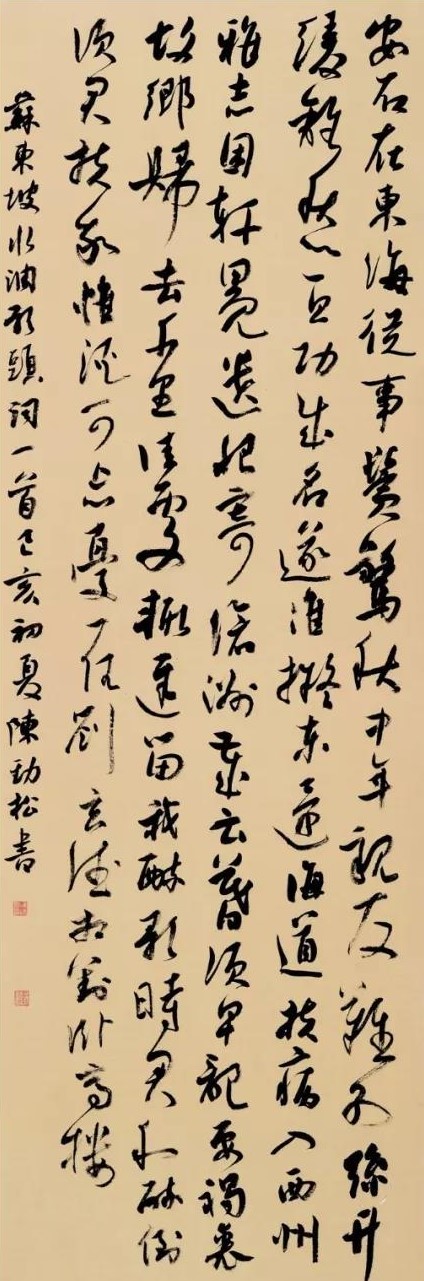 安石在東海從事鬢驚秋中年親友難別絲竹
緩離愁一旦功成名遂准擬東還海道扶病入西州
雅志困軒冕遺恨寄滄洲歲云暮須早計要褐裘
故鄉歸去千里佳處輒遲留我醉歌時君和醉倒
須君扶我惟酒可忘憂一任劉玄德相對臥高樓
蘇東坡水調歌頭詞一首己亥初夏陳勁松書